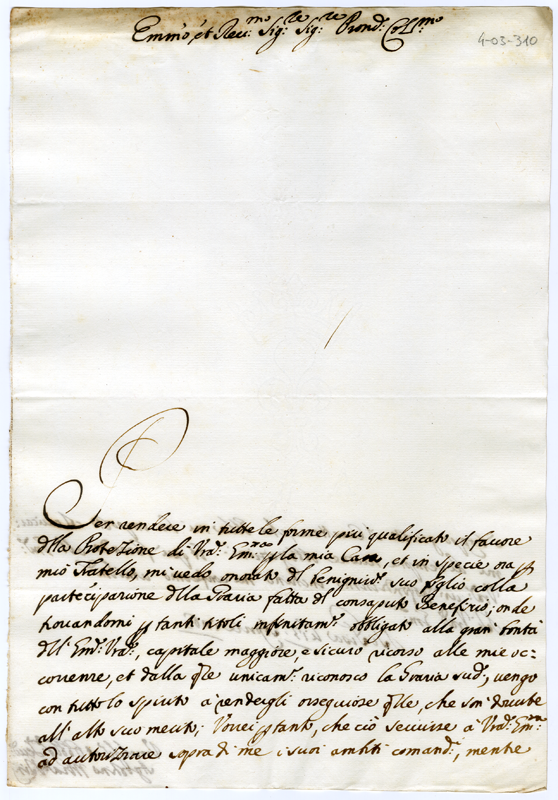 Em̃o, et Rev:mo Sig:re Sig:re Pron: Coll:mo
4-03-310
Per rendere in tutte le forme più qualificato il favore
dlla Protezione di Vra: Em:za p la mia Casa, et in specie ora p
mio Fratello, mi vedo onorato dl benignis:o suo foglio colla
partecipazione dlla Grazia fatta dl consaputo Benefizio; onde
trovandomi p tanti titoli infinitam:te obbligato alla gran bontà
dll' Em: Vra:, capitale maggiore, e sicuro ricorso alle mie oc=
correnze, et dalla qle unicam:te riconosco la Grazia sud:a, vengo
con tutto lo spirito à rendergli ossequiose qlle, che son dovute
all' alto suo merito; Vorrei ptanto, che ciò servisse à Vra: Em:za
ad autorizzare sopra di me i suoi ambiti comandi, mentre